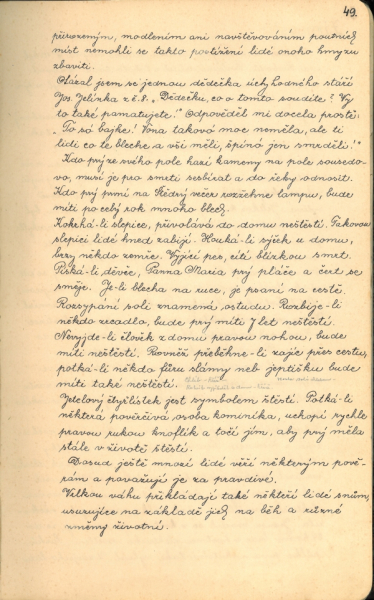 49.
přirozeným, modlením ani navštěvováním poutních
míst nemohli se takto postižení lidé onoho hmyzu
zbaviti.
Otázal jsem se jednou dědečka úctyhodného stáří
Jos. Jelínka z č. 8. „Dědečku, co o tomto soudíte? Vy
to také pamatujete!" Odpověděl mi docela prostě:
„To só bajke! Vona takovó moc neměla, ale ti
lidi co te bleche a vši měli, špinó jen smrděli!"
Kdo prý ze svého pole hází kameny na pole sousedo-
vo, musí je pro smrti sesbírat a do řeky odnosit.
Kdo prý první na Štědrý večer rozžehne lampu, bude
míti po celý rok mnoho blech.
Kokrhá-li slepice, přivolává do domu neštěstí. Takovou
slepici lidé hned zabijí. Houká-li sýček u domu,
brzy někdo zemře. Vyje-li pes, cítí blízkou smrt.
Píská-li děvče, Panna Maria prý pláče a čert se
směje. Je-li blecha na ruce, je psaní na cestě.
Rozsypání soli znamená ostudu. Rozbije-li
někdo zrcadlo, bude prý míti 7 let neštěstí.
Nevyjde-li člověk z domu pravou nohou, bude
míti neštěstí. Rovněž přeběhne-li zajíc přes cestu,
potká-li někdo fůru slámy neb jeptišku bude
míti také neštěstí.
Jetelový čtyřlístek jest symbolem štěstí. Potká-li
některá pověrčivá osoba kominíka, uchopí rychle
pravou rukou knoflík a točí jím, aby prý měla
stále v životě štěstí.
Dosud ještě mnozí lidé věří některým pově-
rám a považují je za pravdivé.
Velkou váhu přikládají také někteří lidé snům,
usuzujíce na základě jich na běh a různé
změny životní.